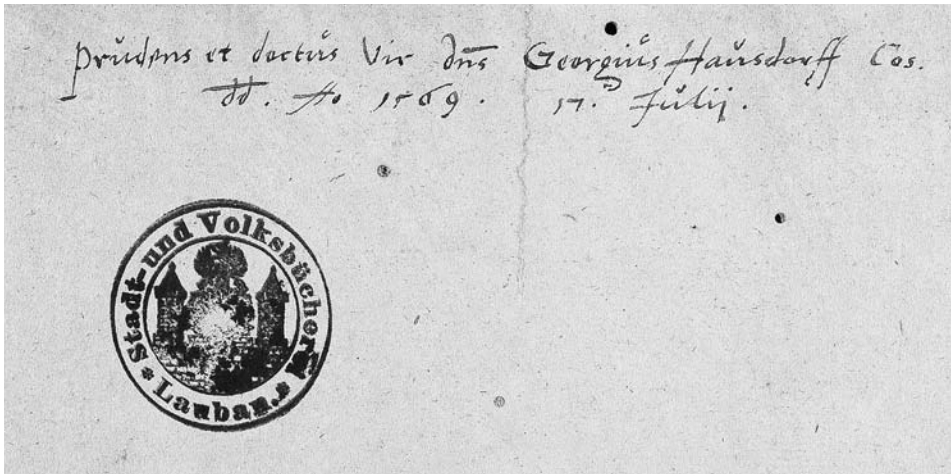 Prudens et doctus Vir dns Georgius Hausdorff Cos.
dd. Ao 1569. 17. Julij.
Stadt- und Volksbücherei
* Lauban. *